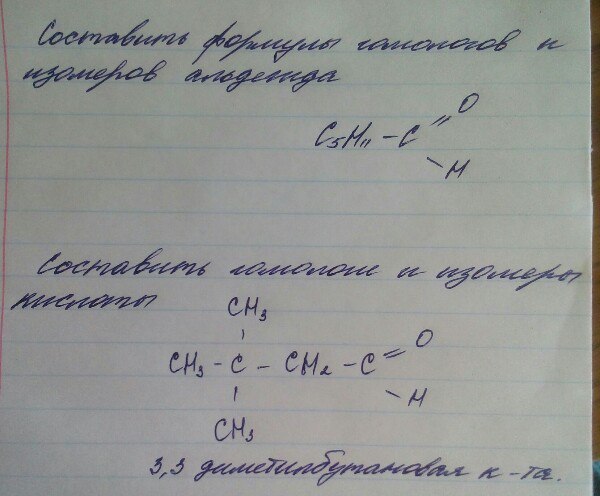 Составить формулы гомологов и
изомеров альдегида
C₅H₁₁ – C = O
– H
Составить гомологи и изомеры
кислоты
CH₃
CH₃ – C – CH₂ – C = O
– H
CH₃
3,3 диметилбутановая к-та.